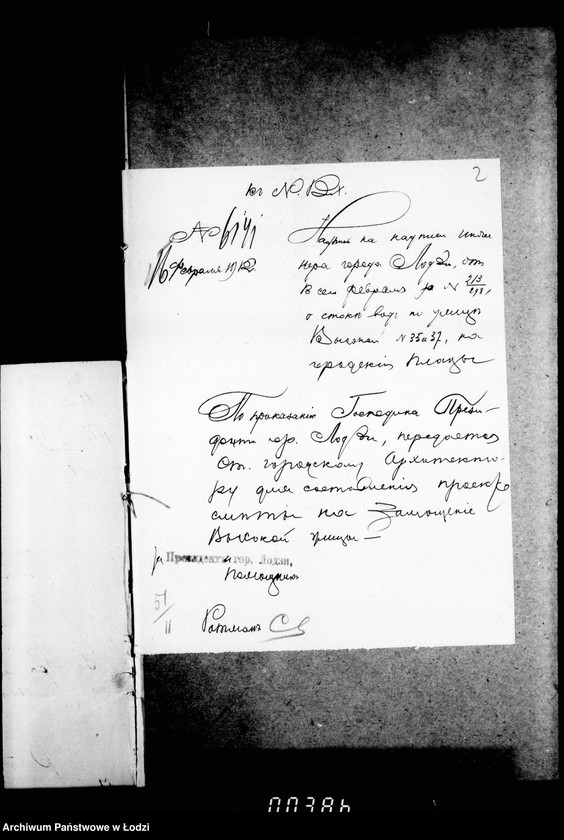 2
къ N. Вх.
№ 6141
16 Февраля 1912.
на надписи Инже
нера города Лодзи, от
Февраля за N 213/293,
о стокѣ водъ по улицѣ
Высокой N 35 и 37, на
городскія плацы
По приказанію Господина Прези-
дента гор. Лодзи, передается
От. городскому Архитекто-
ру для составленія проекта
смѣты на Замощеніе
Высокой улицы —
за Президента гор. Лодзи,
Помощникъ
51/11
Ратманъ
00386
Archiwum Państwowe w Łodzi